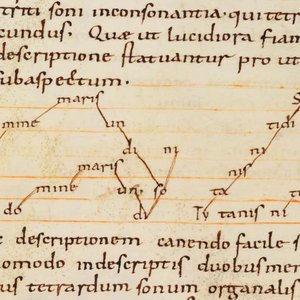 triti soni inconsonantia. qui tetr
cundus. Quae ut lucidiora fiam
descriptione statuantur pro ut
subaspectum.
maris S
mine un tidi
di ni ni
maris nis
mine un so ta
do di Ty tanis ni t
descriptionem canendo facile s
omodo indescriptis duobus mem
us tetrardum sonum organalis